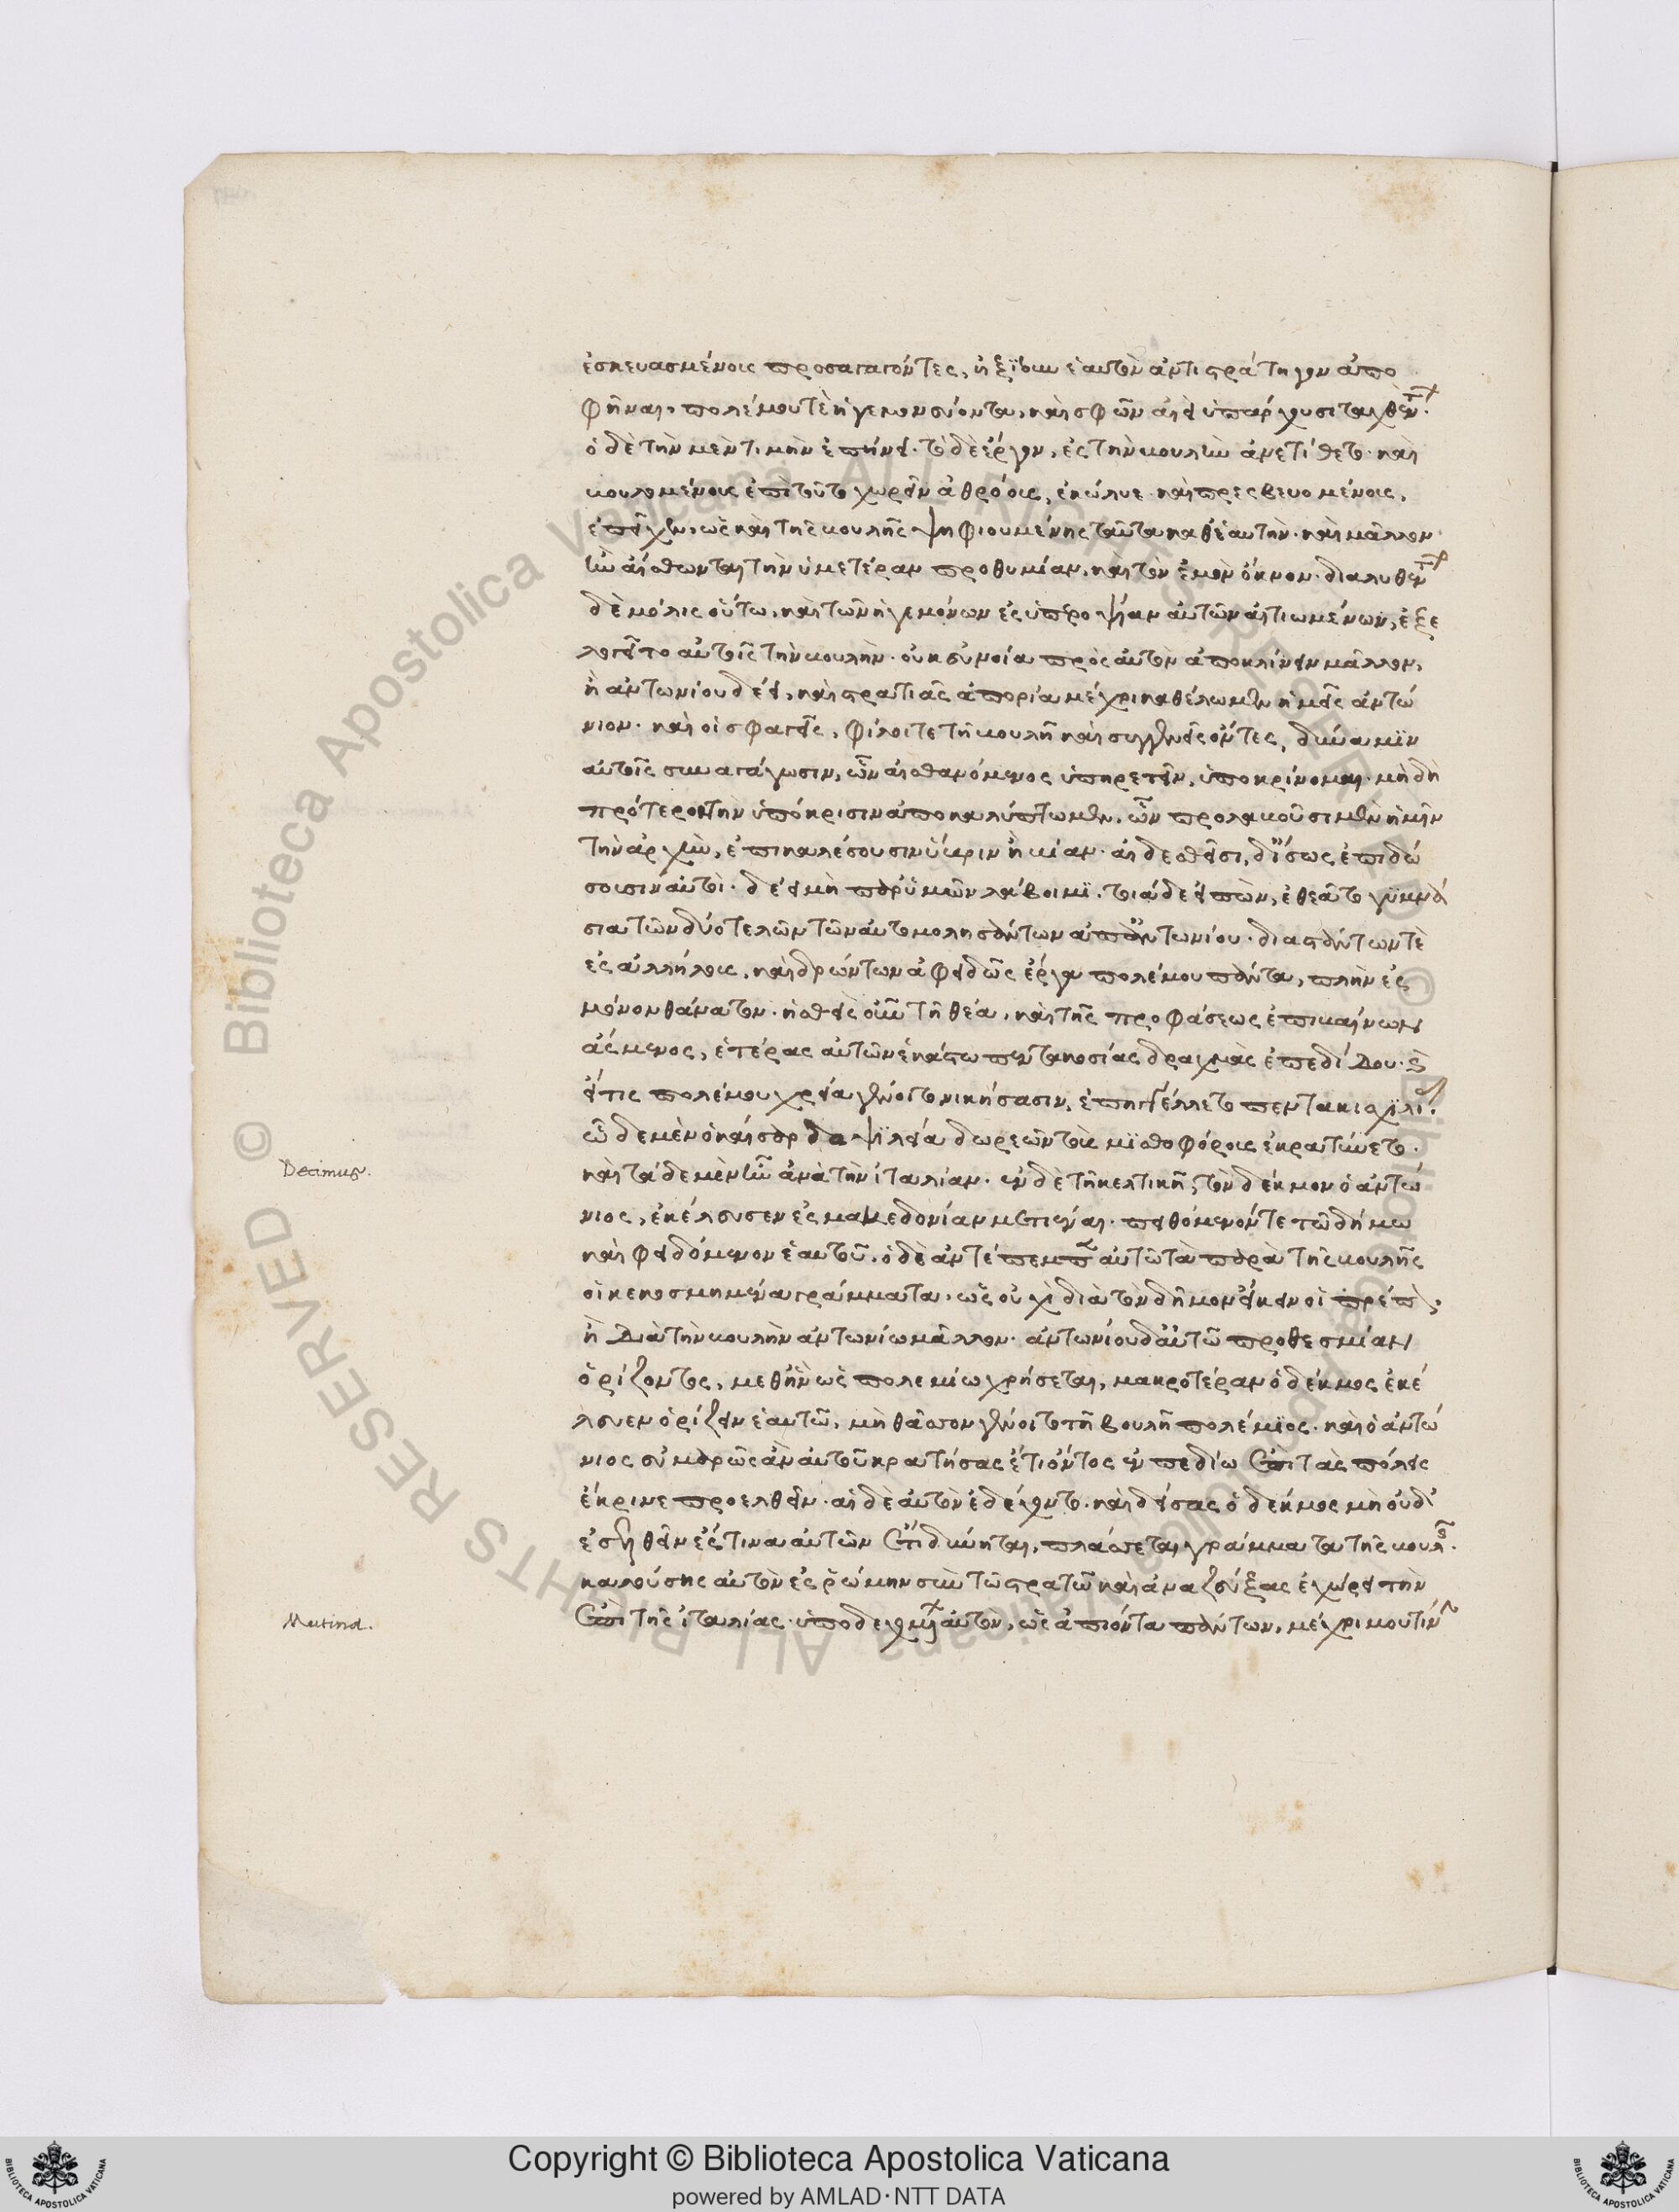 ἐσκευασμένοις προσαγαγόντες, ἠξίουν ἑαυτὸν ἀντιστράτηγον ἀπο
φῆναι, πολέμου τὲ ἡγεμονεύοντα, καὶ σφῶν αἰεὶ ὑπάρχουσι ταχθέντ.
ὁ δὲ τὴν μὲν τιμὴν ἐπήνει. τὸ δὲ ἔργον, ἐς τὴν βουλὴν ἀνετίθετο. καὶ
βουλομένοις ἐπὶ τοῦτο χωρεῖν ἀθρόοις, ἐκώλυε. καὶ πρεσβευομένοις,
ἐπεῖχεν, ὡς καὶ τῆς βουλῆς ψηφιουμένης ταῦτα καθ' ἑαυτὴν. καὶ μᾶλλον
ἢν αἴσθωνται τὴν ὑμετέραν προθυμίαν, καὶ τὸν ἐμὸν ὄκνον. διαλυθέντ
δὲ μόλις οὕτω, καὶ τῶν ἡγεμόνων ἐς ὑπεροψίαν αὐτῶν αἰτιωμένων, ἐξε
λογεῖτο αὐτοῖς τὴν βουλὴν. οὐκ εὐνοία πρὸς αὐτὸν ἀποκλίνειν μᾶλλον,
ἢ ἀντωνίου δέει, καὶ στρατιᾶς ἀπορία μέχρι καθέλωμεν ἡμεῖς ἀντώ
νιον. καὶ οἱ σφαγεῖς, φίλοι τε τῆ βουλῆ καὶ συγγενεῖς ὄντες, δύναμϊν
αὐτοῖς συναγάγωσιν, ὧν αἰσθανόμενος ὑπηρετεῖν, ὑποκρίνομαι. μὴ δὴ
πρότεροι τὴν ὑπόκρισιν ἀποκαλύπτωμεν, ὧν προλαβοῦσι μὲν ἡμῖν
τὴν ἀρχὴν, ἐπικαλέσουσιν ὕβριν ἢ βίαν. αἰδεσθεῖσι, δ' ἴσως ἐπιδώ
σουσιν αὐτοὶ. δέει μὴ παρ' ὑμῶν λάβοιμϊ. τοιάδε εἰπὼν, ἐθεᾶτο γϋμνά
σια τῶν δύο τελῶν τῶν αὐτομολησάντων ἀπ' ἀντωνίου. διαστάντων τὲ
ἐς ἀλλήλοις, καὶ δρώντων ἀφειδῶς ἔργα πολέμου πάντα, πλὴν ἐς
μόνον θάνατον. ἡσθεὶς οὖν τῆ θέα, καὶ τῆς προφάσεως ἐπιβαίνων
ἄσμενος, ἑτέρας αὐτῶν ἑκάστω πεντακοσίας δραχμὰς ἐπεδίδου. καὶ
εἴ τις πολέμου χρεία γένοιτο νικήσασιν, ἐπηγγέλλετο πεντακισχϊλί.
ὧδε μὲν ὁ καῖσαρ δαψϊλεία δωρεῶν τοὺς μϊσθοφόροις ἐκρατύνετο.
καὶ τάδε μὲν ἦν ἀνὰ τὴν ἰταλίαν. ἐν δὲ τῆ κελτικῆ, τὸν δέκμον ὁ ἀντώ
νιος, ἐκέλευσεν ἐς μακεδονίαν μετιέναι. πειθόμενόν τε τῶ δήμω
καὶ φειδόμενον ἑαυτοῦ. ὁ δὲ ἀντέπεμπεν αὐτῶ τὰ παρὰ τῆς βουλῆς
οἱ κεκοσμημένα γράμματα. ὡς οὐχὶ διὰ τὸν δῆμον εἴκειν οἱ πρέπον,
ἢ διὰ τὴν βουλὴν ἀντωνίω μᾶλλον. ἀντωνίου δ' αὐτῶ προθεσμίαν
ὁρίζοντος, μεθ' ἣν ὡς πολεμίω χρήσεται, μακροτέραν ὁ δέκμος ἐκέ
λευεν ὁρίζειν ἑαυτῶ, μὴ θᾶσσον γένοιτο τῆ βουλῆ πολέμϊος. καὶ ὁ ἀντώ
νιος εὐμαρῶς ἂν αὐτοῦ κρατήσας ἔτι ὄντος ἐν πεδίω ἐπὶ τὰς πόλεις
ἔκρινε προελθεῖν. αἱ δὲ αὐτὸν ἐδέχοντο. καὶ δείσας ὁ δέκμος μὴ οὐδ'
ἐσελθεῖν ἔς τινα αὐτῶν ἔτι δύνηται, πλάσσεται γράμματα τῆς βουλ.
καλούσης αὐτὸν ἐς ῥώμην σὺν τῶ στρατῶ καὶ ἀναζεύξας ἐχώρει τὴν
ἐπὶ τῆς ἰταλίας. ὑποδεχομένων αὐτὸν, ὡς ἀπιόντα πάντων, μέχρι μουτίν
Decimus.
Mutina.